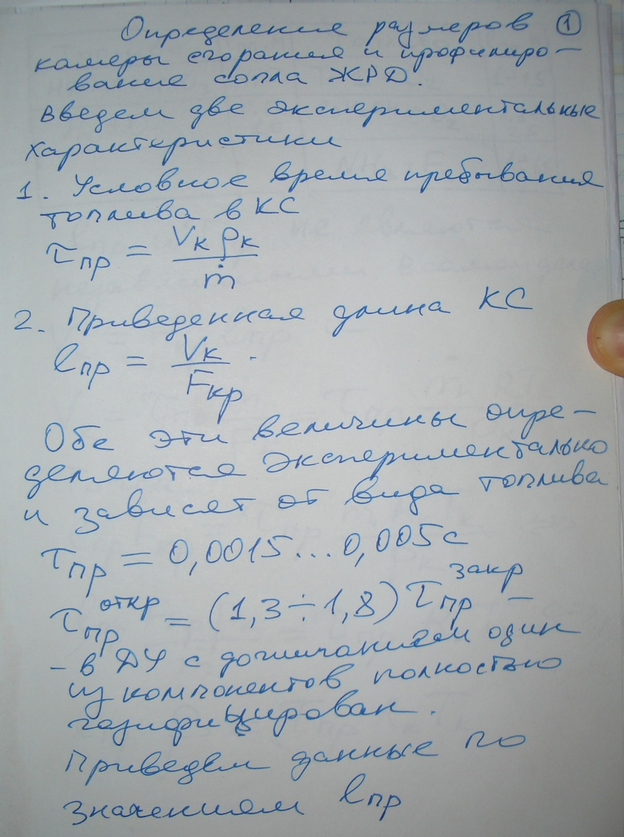 Определение размеров ①
камеры сгорания и профилиро-
вание сопла ЖРД.
Введем две экспериментальные
характкристики
1. Условное время пребывания
топлива в КС
τпр = Vк ρк / ṁ
2. Приведенная длина КС
lпр = Vк / Fкр .
Обе эти величины опре-
деляются экспериментально
и зависят от вида топлива
τпр = 0,0015...0,005с
τпр откр = (1,3÷1,8) τпр закр –
– в ДУ с дожиганием один
из компонентов полностью
газифицирован.
Приведем данные по
значениям lпр